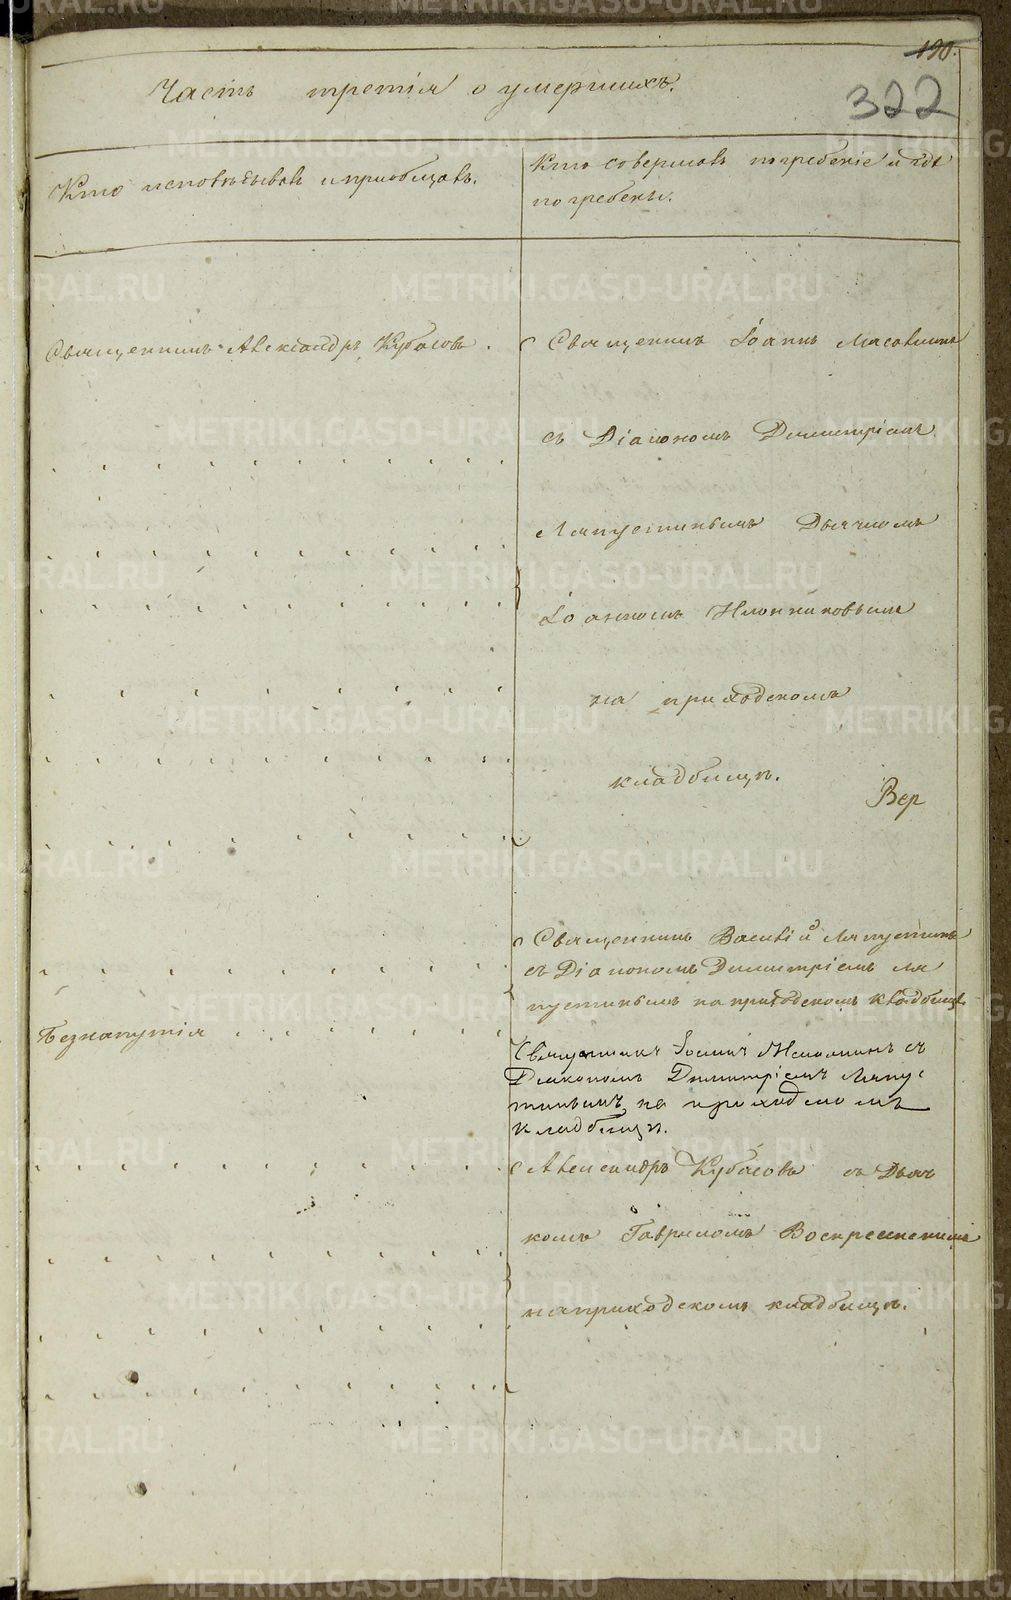 190.
322
Часть третія о умершихъ.
Кто исповѣдывалъ и приобщалъ.
Кто совершалъ погребеніе и гдѣ
погребены.
Священникъ Александръ Кубасовъ.
Священникъ Іоаннъ
съ Діакономъ Димитріемъ
Ляпустинымъ Дьячкомъ
Іоанномъ
на приходскомъ
кладбищѣ.
Вер
Священникъ Василій Ляпустинъ
съ Діакономъ Димитріемъ Ля
пустинымъ на приходскомъ кладбищѣ.
Безнапутія
Священникъ съ
Діакономъ Димитріемъ Ляпу
стинымъ на приходскомъ
кладбищѣ.
Александръ Кубасовъ съ Дьяч
комъ Гавриломъ Воскресенскимъ
на приходскомъ кладбищѣ.
METRIKI.GASO-URAL.RU